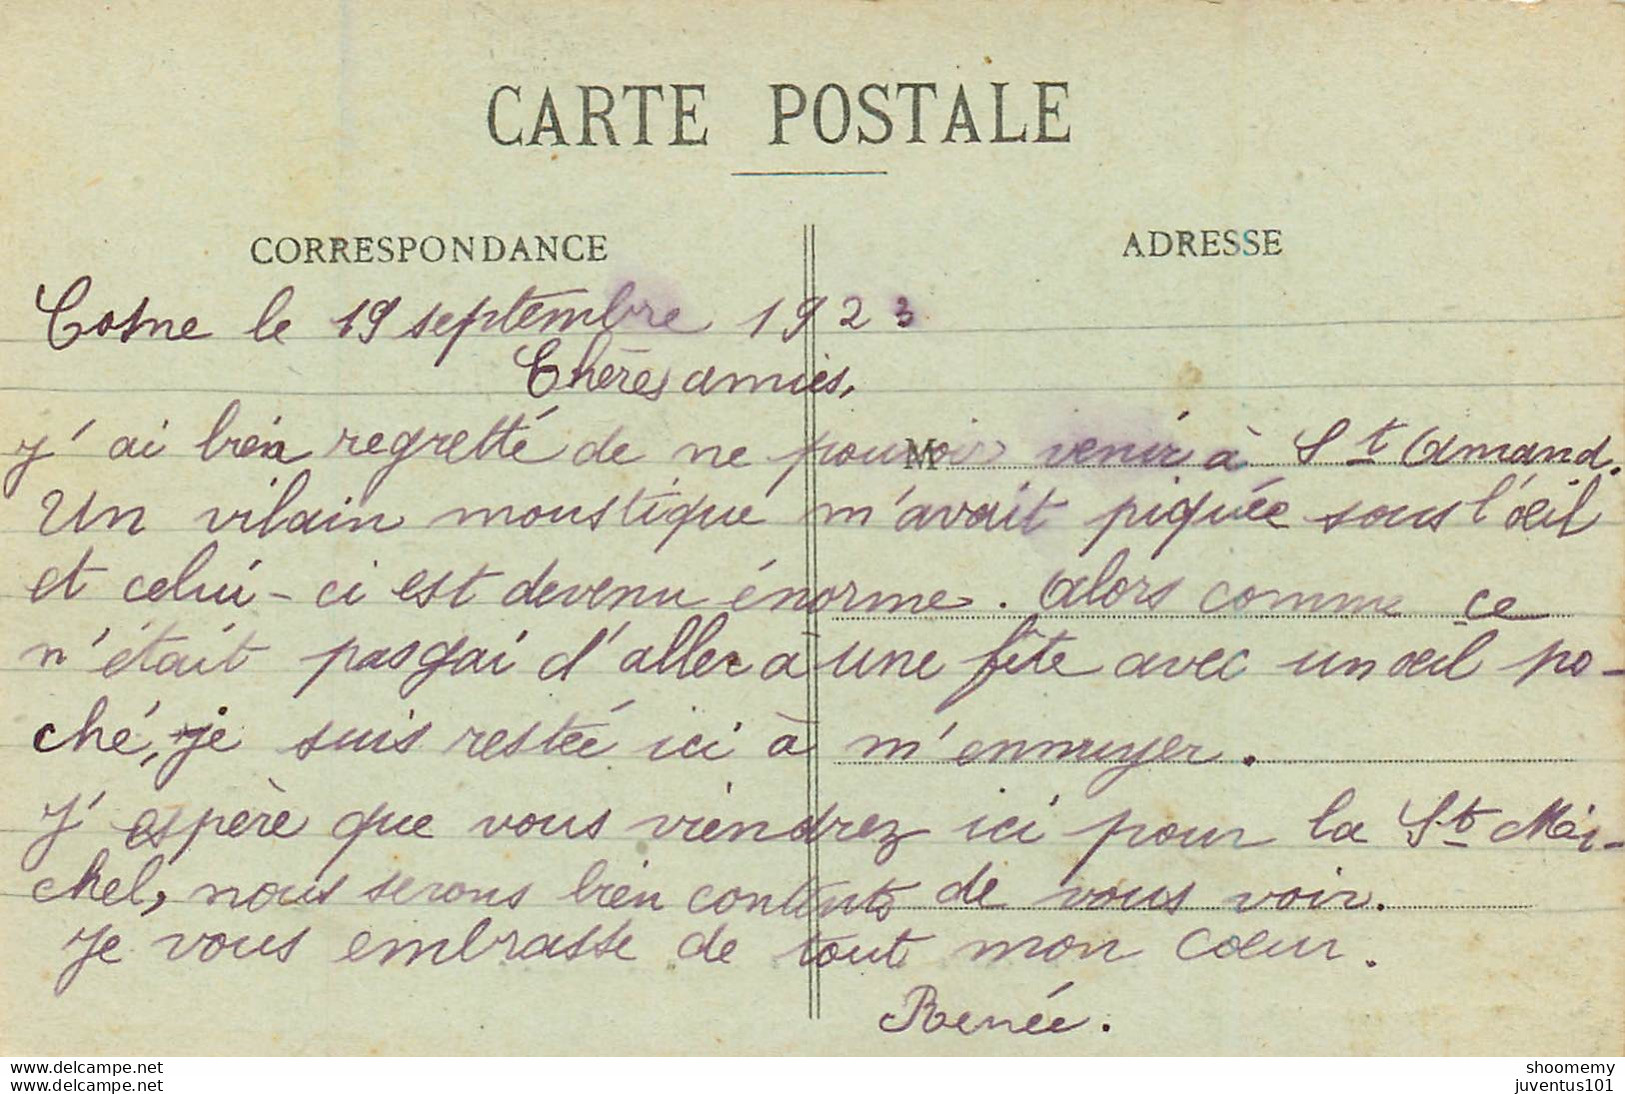 CARTE POSTALE
CORRESPONDANCE
ADRESSE
Cosne le 19 septembre 1923
Chères amies,
J'ai bien regretté de ne pouvoir venir à St Amand.
M
Un vilain moustique m'avait piquée sous l'œil
et celui-ci est devenu énorme. Alors comme ce
n'était pas gai d'aller à une fête avec un œil po-
ché, je suis restée ici à m'ennuyer.
J'espère que vous viendrez ici pour la St Mi-
chel, nous serons bien contents de vous voir.
Je vous embrasse de tout mon cœur.
Renée.
shoomemy
juventus101
shoomemy
juventus101